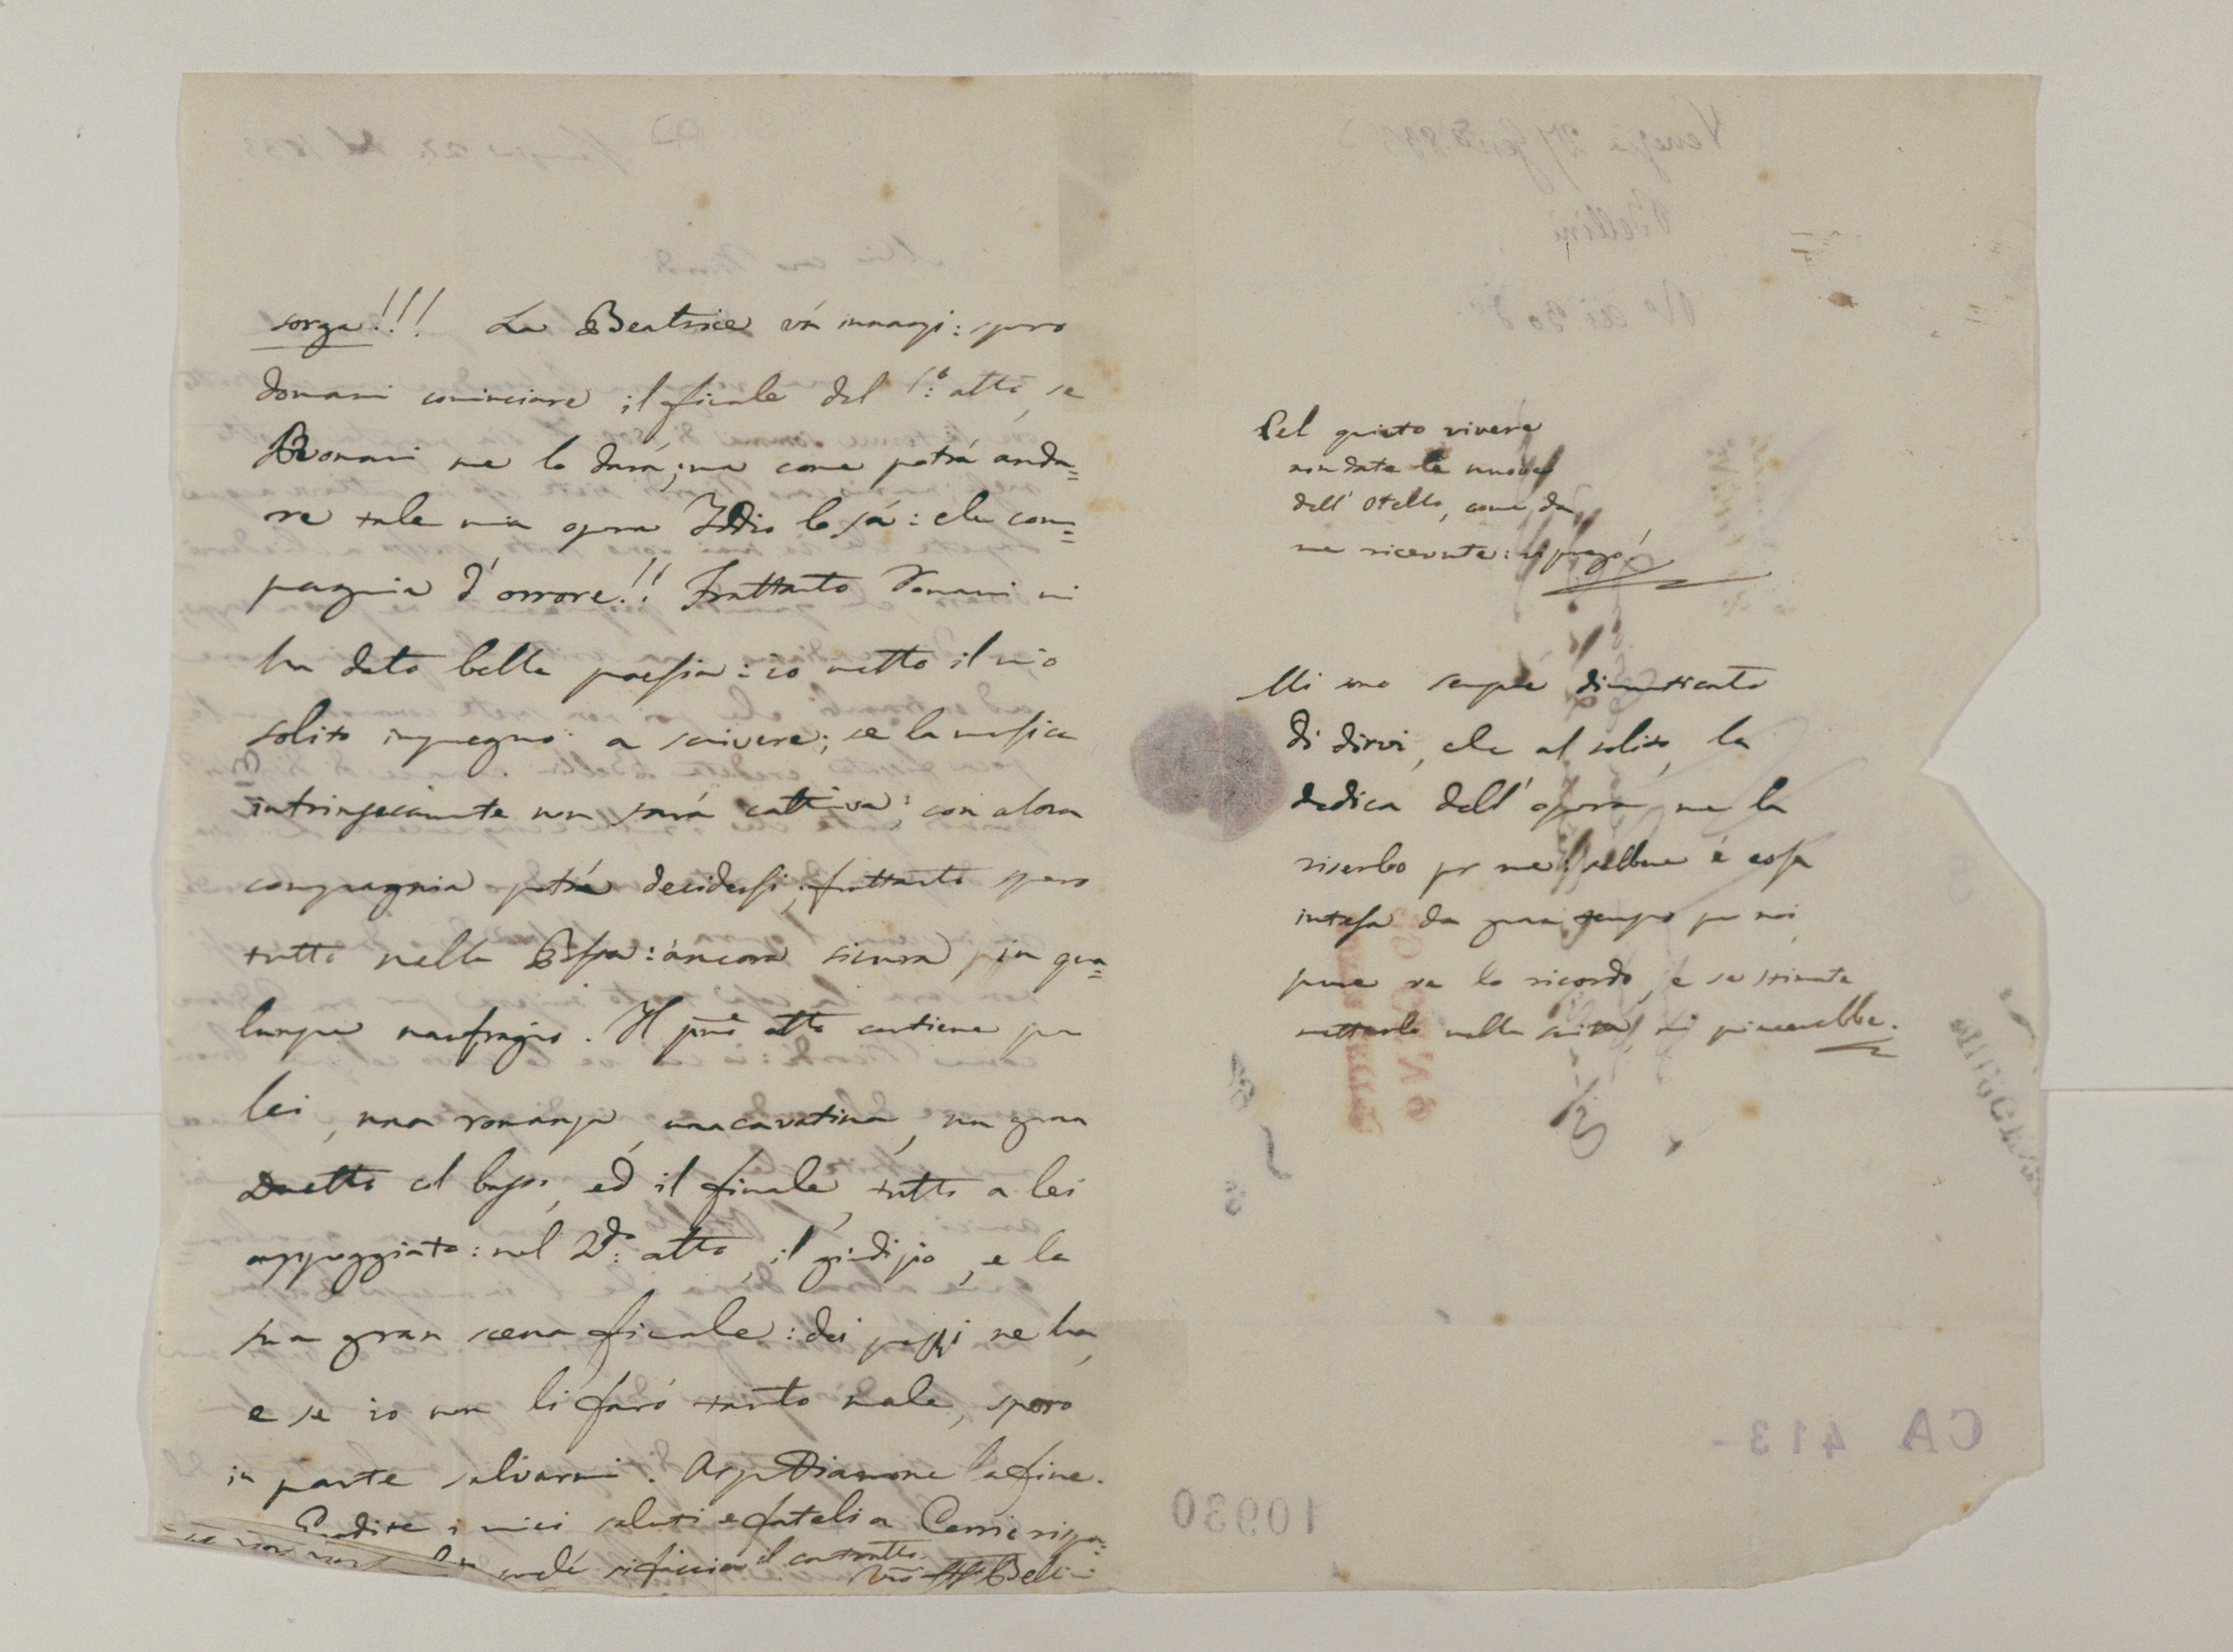 sorga!!! La Beatrice vá innanzi: spero
domani cominciare il finale del 1.º atto, se
Romani me lo dará; ma come potrá anda=
re tale mia opera Iddio lo sá: che com=
pagnia d'orrore!! Frattanto Romani mi
ha dato bella poesia: io metto il mio
solito impegno a scrivere; se la musica
intrinsecamente non sará cattiva; con altra
compagnia potrá decidersi; frattanto spero
tutto nella Pasta: áncora sicura in qua=
lunque naufragio. Il primo atto contiene per
lei, una romanza, una cavatina, un gran
Duetto col basso, ed il finale, tutto a lei
appoggiato: nel 2.do atto, il giudizio, e la
sua gran scena finale: dei pezzi ne ha,
e se io non li faró tanto male, spero
in parte salvarmi. Aspettiamone la fine.
Gradite i miei saluti e fateli a Cerri
si faccia il contratto.
Vro Bellini
Pel quieto vivere
non date le nuove
dell' Otello, come da
me ricevute: vi prego!
Mi sono sempre dimenticato
di dirvi, che al solito, la
dedica dell' opera me la
riserbo per me: sebbene é cosa
intesa da gran tempo per noi,
pure ve lo ricordo, e se stimate
metterlo nella scritta, mi piacerebbe.
CA 413-
10930